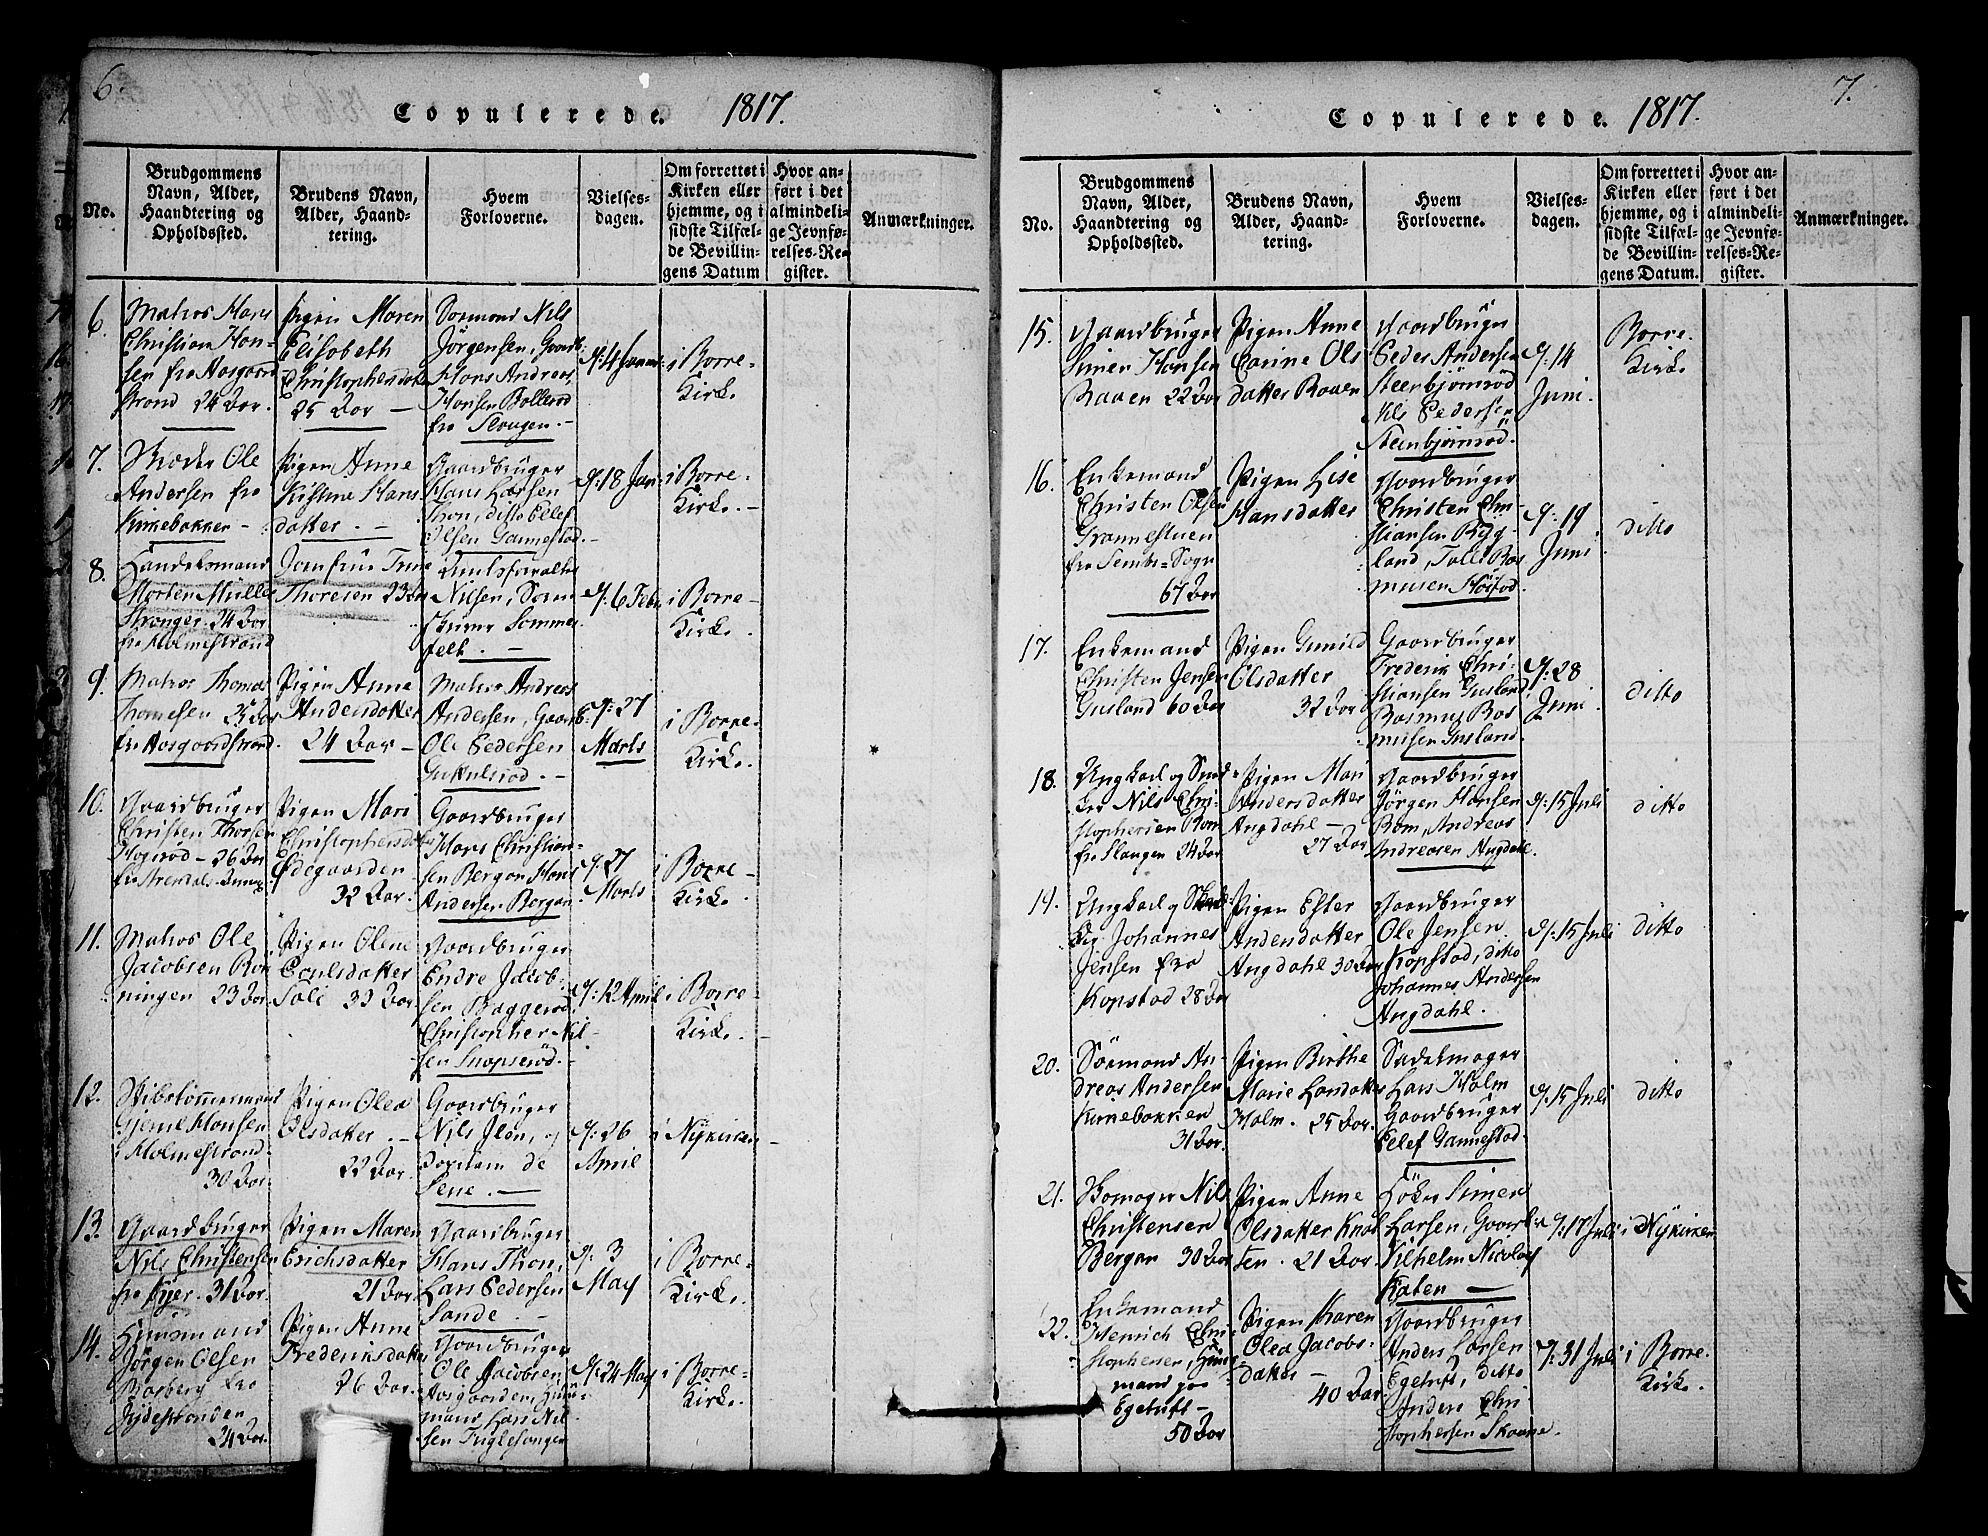 6.
Copulerede. 1817.
No.
Brudgommens
Navn, Alder,
Haandtering og
Opholdssted.
Brudens Navn,
Alder, Haand-
tering.
Hvem
Forloverne.
Vielses-
dagen.
Om forrettet i
Kirken eller
hjemme, og i
sidste Tilfæl-
de Bevillin-
gens Datum
Hvor an-
ført i det
almindeli-
ge Jevnfø-
relses-Re-
gister.
Anmærkninger.
6.
Matros Hans
Christian Han-
sen fra Aasgaard
strand 24 Aar.
Pigen Maren
Elisabeth
Christophersdatter
25 Aar
Sørmand Nils
Jørgensen, Gaardb:
Hans Andreas
Hansen Bollerød
fra Slaugen.
i Borre-
Kirke.
7.
Ole
Andersen fra
Kirkebakken
Pigen Anne
Kistine Hans
datter.
Gaardbruger
Hans Larsen
Thon, ditto Ellef
Olsen Gannestad.
18 Jan:
i Borre-
Kirke.
8.
Handelsmand
Morten Müller
34 Aar
fra Holmestrand
Jomfrue Trine
Thoresen 23 Aar
Amtsforvalter
Nilsen, Soren
skriver Sommer
felt.
6 Febr
i Borre-
Kirke.
9.
Matros Thomas
Thomesen 25 Aar
fra Aasgaardstrand.
Pigen Anne
Andersdatter
24 Aar
Matros Andreas
Andersen, Gaardb:
Ole Pedersen
27
Marts
i Borre-
Kirke.
10.
Gaardbruger
Christen Thorsen
26 Aar
Pigen Mari
Christophersdatter
Ødegaarden
32 Aar.
Gaardbruger
Hans Christian-
sen Bergan Hans
Andersen Bergan.
27
Marts
i Borre-
Kirke.
11.
Matros Ole
Jacobsen Rør
ningen 23 Aar.
Pigen Olene
Poulsdatter
32 Aar.
Gaardbruger
Endre Jacob-
sen Baggerød,
Christopher Nil-
sen Snopserød.
12 April
i Borre-
Kirke.
12.
Skibstømmermand
Hansen
Holmestrand.
30 Aar.
Pigen Olea
Olsdatter.
22 Aar.
Gaardbruger
Nils
26
April
i Nykirken
13.
Gaardbruger
Nils Christensen
fra Kjer. 31 Aar.
Pigen Maren
Erichsdatter
21 Aar.
Gaardbruger
Hans Thon,
Lars Pedersen
Sande.
3
May
i Borre-
Kirke.
14.
Huusmand
Jørgen Olsen
Basberg fra
34 Aar.
Pigen Anne
Frederiksdatter
26 Aar.
Gaardbruger
Ole Jacobsen
Aasgaarden, Huus-
mand, Lars Nil-
sen Fuglesangen
24 May
i Borre-
Kirke.
7.
Copulerede. 1817.
No.
Brudgommens
Navn, Alder,
Haandtering og
Opholdssted.
Brudens Navn,
Alder, Haand-
tering.
Hvem
Forloverne.
Vielses-
dagen.
Om forrettet i
Kirken eller
hjemme, og i
sidste Tilfæl-
de Bevillin-
gens Datum.
Hvor an-
ført i det
almindeli-
ge Jevnfø-
relses-Re-
gister.
Anmærkninger.
15.
Gaardbruger
Simen Hansen
Raaen 22 Aar
Pigen Anne
Carine Ols
datter Raaen
Gaardbruger
Peder Andersen
Steenbjørnrød
Nils Pedersen
Steenbjørnrød.
14
Juni.
Borre-
Kirke
16.
Enkemand
Christen Olsen
Grannestuen
fra Sembs-Sogn
67 Aar
Pigen Lise
Hansdatter
Gaardbruger
Christen Chri-
stiansen Byg-
land, Ras-
musen
19
Juni
ditto
17.
Enkemand
Christen Jensen
Gusland 60 Aar
Pigen Gunild
Olsdatter
32 Aar.
Gaardbruger
Frederik Chri-
stiansen Gusland
Rasmus Ras-
musen Gusland.
28
Juni
ditto
18.
Ungkarl og
Nils Chri-
stophersen Rom
fra Slaugen 24 Aar
Pigen Mari
Andersdatter
Angdahl
27 Aar
Gaardbruger
Jørgen Hansen
Rom, Andreas
Andreasen Angdahl.
15 Juli
ditto
19.
Ungkarl og
Johannes
Jensen fra
Kopstad 28 Aar
Pigen Ester
Andersdatter
Angdahl 30 Aar
Gaardbruger
Ole Jensen
Kopstad, ditto
Johannes Andersen
Angdahl.
15 Juli
ditto
20.
Sørmand An-
dreas Andersen
Kirkebakken
31 Aar.
Pigen Birthe
Marie Larsdatter
Holm. 25 Aar.
Sadelmager
Lars Holm
Gaardbruger
Ellef Gannestad.
15 Juli
ditto
21.
Nils
Christensen
Bergan 30 Aar
Pigen Anne
Olsdatter Knat
ten. 21 Aar.
Simen
Larsen, Gaardbr
Vilhelm Nicolay
Katen
17 Juli
i Nykirken
22.
Enkemand
Henrich Chri-
stophersen, Huus-
mand paa
Egetuft
50 Aar
Pigen Karen
Olea Jacobs-
datter
40 Aar.
Gaardbruger
Anders Larsen
Egetuft, ditto
Anders Chri-
stophersen Skaane.
31 Juli
i Borre-
Kirke.